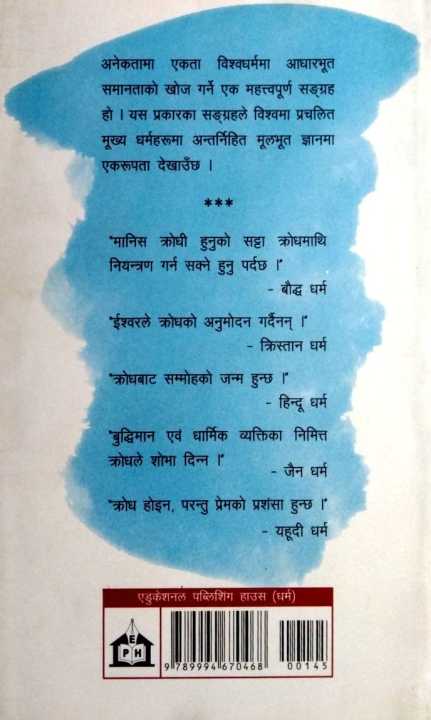 अनेकतामा एकता विश्वधर्ममा आधारभूत
समानताको खोज गर्ने एक महत्त्वपूर्ण सङ्ग्रह
हो । यस प्रकारका सङ्ग्रहले विश्वमा प्रचलित
मूख्य धर्महरूमा अन्तर्निहित मूलभूत ज्ञानमा
एकरूपता देखाउँछ ।
***
"मानिस क्रोधी हुनुको सट्टा क्रोधमाथि
नियन्त्रण गर्न सक्ने हुनु पर्दछ ।"
- बौद्ध धर्म
"ईश्वरले क्रोधको अनुमोदन गर्दैनन् ।"
- क्रिस्तान धर्म
"क्रोधबाट सम्मोहको जन्म हुन्छ ।"
- हिन्दू धर्म
"बुद्धिमान एवं धार्मिक व्यक्तिका निमित्त
क्रोधले शोभा दिन्न ।"
- जैन धर्म
"क्रोध होइन, परन्तु प्रेमको प्रशंसा हुन्छ ।"
- यहूदी धर्म
एडुकेशनल पब्लिशिंग हाउस (धर्म)
E
P H
9 789994 670468
00145